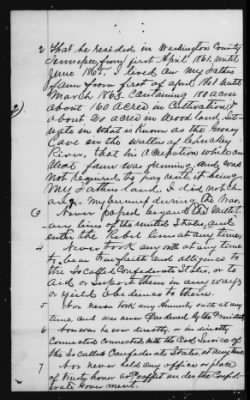 2 That he resided in Washington County
Tennessee, from first April 1861 until
June 1865. I lived on my Fathers
farm from first of april 1861 until
March 1863. Containing 180 acres
about 160 acres in Cultivation &
about 20 acres in Wood land, Sit-
uate in what is known as the
Cove on the Waters of
River, that his occupation while on
that farm was farming, and was
not required to pay rent it being
My Fathers land. I did not ch-
ange my buisness during the War,
3 Never passed beyond the Military
lines of the United States, and
enter the Rebel lines at any time,
4 Never took any oath at any time
to bear true faith and allegience to
the So Called Confederate States, or to
aid or support them in any way
or yield obedience to them.
5 Nor never took any amnesty oath at any
time, and was never Pardoned by the President
6 Nor was he ever directly, or in directly
connected connected with the Civil Service of
the So called Confederate States, at any time
7 Nor never held any office or place
of trust, honor or profit under the Confed-
erate Government.